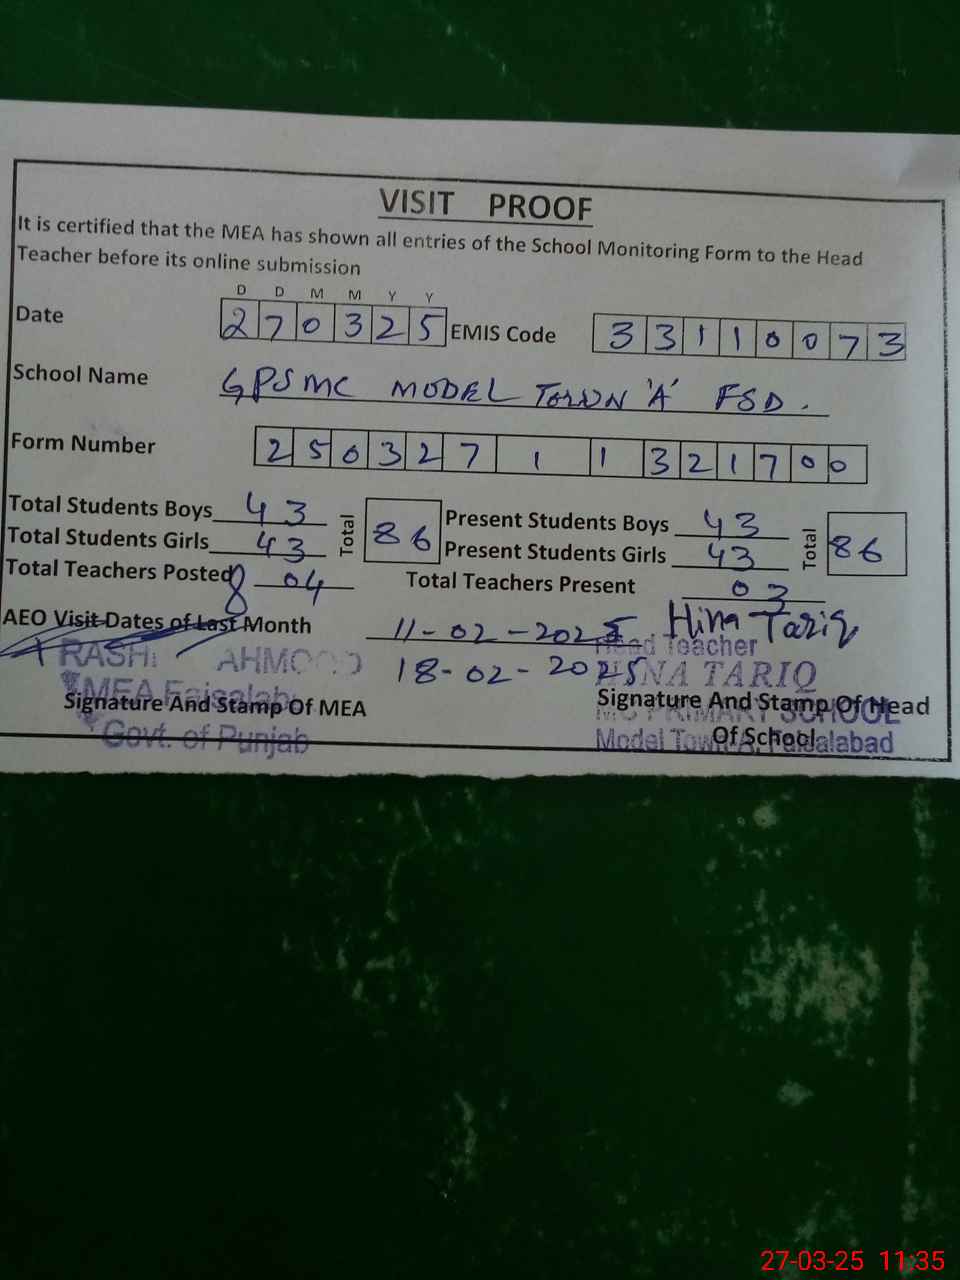 VISIT PROOF
It is certified that the MEA has shown all entries of the School Monitoring Form to the Head
Teacher before its online submission
D D M M Y Y
Date 2 7 0 3 2 5 EMIS Code 3 3 1 1 0 0 7 3
School Name GPS MC MODEL TOWN 'A' FSD.
Form Number 2 5 0 3 2 7 1 1 3 2 1 7 0 0
Total Students Boys 43 Total 86 Present Students Boys 43 Total 86
Total Students Girls 43 Present Students Girls 43
Total Teachers Posted 04 Total Teachers Present 03
AEO Visit Dates of Last Month 11-02-2025 Hina Tariq
Head Teacher
18-02-2025
AHMOOD TARIQ
MEA Faisalab
Signature And Stamp Of MEA Signature And Stamp Of Head Of School
PRIMARY SCHOOL
Govt. of Punjab Model Town A, Faisalabad
27-03-25 11:35